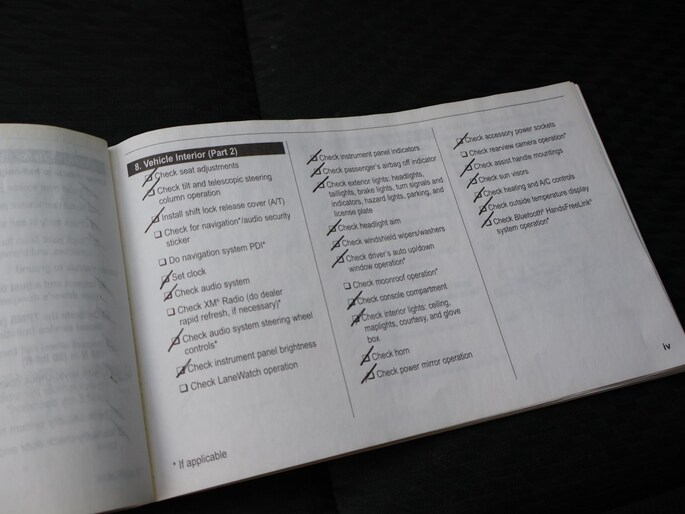 8. Vehicle Interior (Part 2)
Check seat adjustments
Check tilt and telescopic steering
column operation
Install shift lock release cover (A/T)
Check for navigation*/audio security
sticker
Do navigation system PDI*
Set clock
Check audio system
Check XM® Radio (do dealer
rapid refresh, if necessary)*
Check audio system steering wheel
controls*
Check instrument panel brightness
Check LaneWatch operation
* If applicable
Check instrument panel indicators
Check passenger's airbag off indicator
Check exterior lights: headlights,
taillights, brake lights, turn signals and
indicators, hazard lights, parking, and
license plate
Check headlight aim
Check windshield wipers/washers
Check driver's auto up/down
window operation*
Check moonroof operation*
Check console compartment
Check interior lights: ceiling,
maplights, courtesy, and glove
box
Check horn
Check power mirror operation
Check accessory power sockets
Check rearview camera operation*
Check assist handle mountings
Check sun visors
Check heating and A/C controls
Check outside temperature display
Check Bluetooth® HandsFreeLink®
system operation*
iv